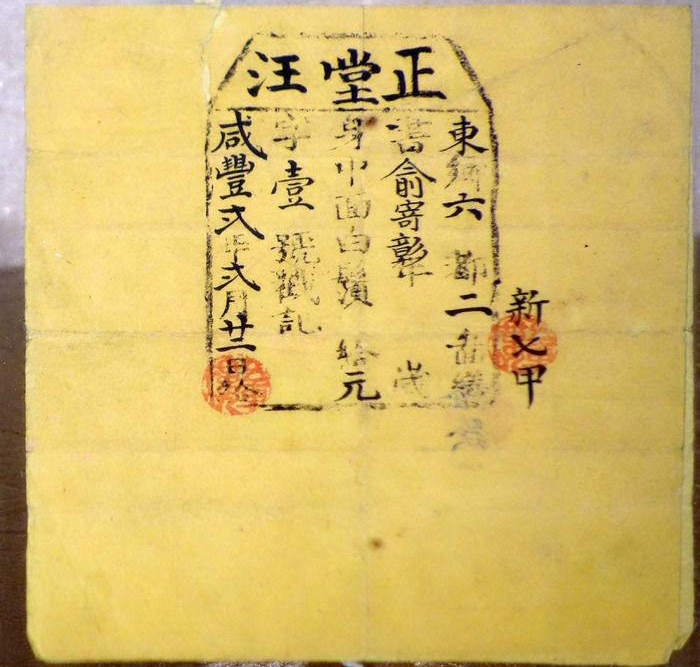 正堂汪
新七甲
東鄉六都二啚
書俞寄彰年 歲
身中面白鬚 元
字壹號戳記
咸豐弍年弍月廿二日給